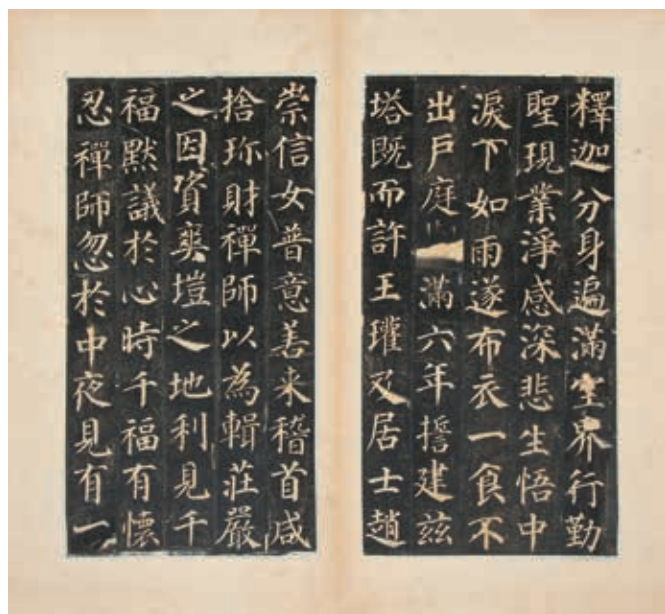 釋迦分身遍滿空界行勤
聖現業淨感深悲生悟中
淚下如雨遂布衣一食不
出戶庭滿六年擔建茲
塔既而許王瓘及居士趙
崇信女普意善来稽首咸
捨珎財禪師以為輯莊嚴
之因資爽塏之地利見千
福默議於心時千福有懷
忍禪師忽於中夜見有一